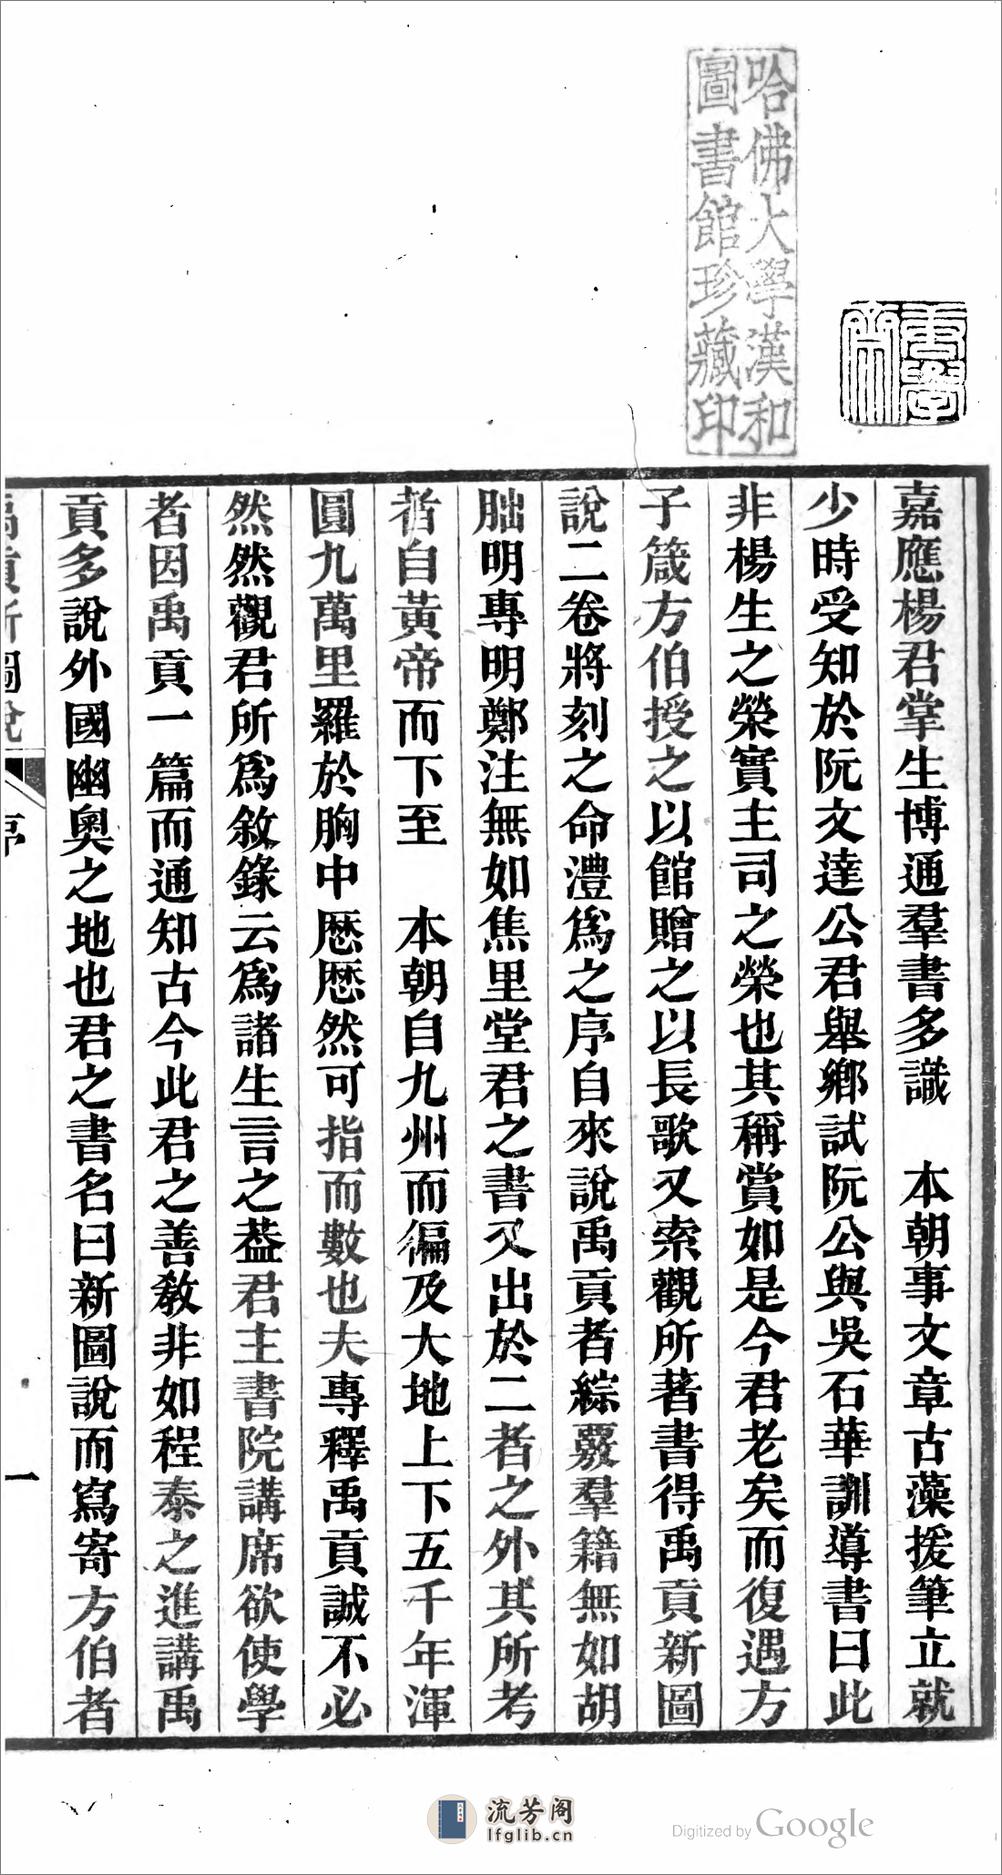 哈佛大學漢和
圖書館珍藏印
嘉應楊君掌生博通羣書多識　本朝事文章古藻援筆立就
少時受知於阮文達公君舉鄉試阮公與吳石華訓導書曰此
非楊生之榮實主司之榮也其稱賞如是今君老矣而復遇方
子箴方伯授之以館贈之以長歌又索觀所著書得禹貢新圖
說二卷將刻之命澧爲之序自來說禹貢者綜覈羣籍無如胡
朏明專明鄭注無如焦里堂君之書又出於二者之外其所考
者自黃帝而下至　本朝自九州而徧及大地上下五千年渾
圓九萬里羅於胸中歷歷然可指而數也夫專釋禹貢誠不必
然然觀君所爲敘錄云爲諸生言之葢君主書院講席欲使學
者因禹貢一篇而通知古今此君之善教非如程泰之進講禹
貢多說外國幽奧之地也君之書名曰新圖說而寫寄方伯者
禹貢新圖說
序
一
流芳阁
lfglib.cn
Digitized by Google